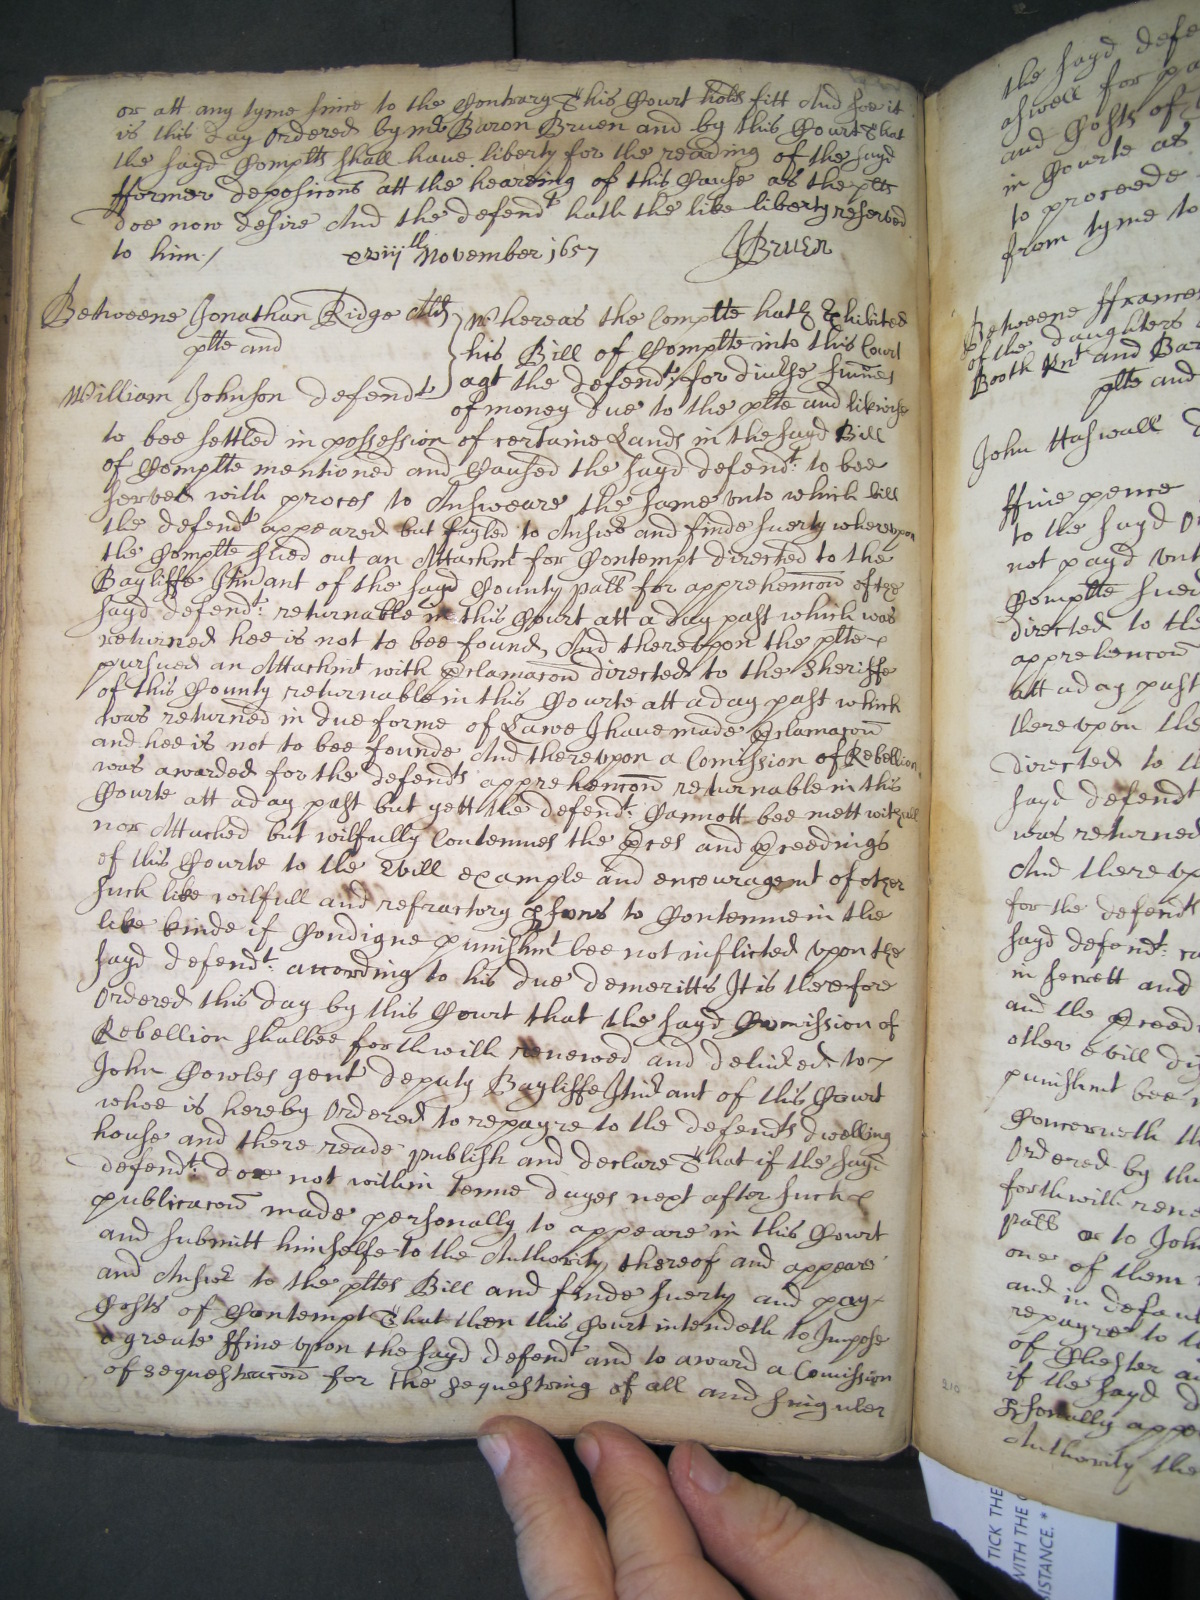 or att any tyme since to the Contrary This Court holds fitt And soe it
is this day Ordered by mr Baron Bruen and by this Court That
the sayd Complts shall have liberty for the reading of the sayd
fformer deposicons att the hearding of this Cause as the plts
doe now desire And the defendt hath the like liberty reserved
to him /
xviijth November 1657
JBruen
Betweene Jonathan Ridge
plte and
William Johnson defendt
Whereas the Complte hath Exhibited
his Bill of Complte into this Court
agt the defendt: for diu'se summes
of money due to the plte and likewise
to bee settled in possession of certaine Lands in the sayd Bill
of Complte mentioned and Caused the sayd defendt: to bee
served with proces to Answeare the same unto which bill
the defendt appeared but fayled to Answ and finde suerty whereupon
the Complte sued out an Attachmt for Contempt directed to the
Bayliffe Itin'ant of the sayd County pall for apprehencon of the
sayd defendt: returnable in this Court att a day past which was
returned hee is not to bee found And thereupon the plte
pursued an Attachmt with Pclamacon directed to the Sheriffe
of this County returnable in this Courte att a day past which
was returned in due forme of Lawe I have made Pclamacon
and hee is not to bee founde And thereupon a Comission of Rebellion
was awarded for the defendts apprehencon returnable in this
Courte att a day past but yett the defendt: Cannott bee mett withall
nor Attached but wilfully Contemnes the Pces and Pceedings
of this Courte to the Evill example and encouragemt of other
such like wilfull and refractory Psons to Contemne in the
like kinde if Condigne punishmt bee not inflicted upon the
sayd defendt: according to his due demeritts It is therefore
Ordered this day by this Court that the sayd Comission of
Rebellion shalbee forthwith renewed and deliu'ed to
John Cowles gent deputy Bayliffe Itin'ant of this Court
whoe is hereby Ordered to repayre to the defendts dwelling
house and there reade publish and declare That if the sayd
defendt: doe not within tenne dayes next after such
publicacon made personally to appeare in this Court
and submitt himselfe to the Authority thereof and appeare
and Answ to the pltes Bill and finde suerty and pay
Costs of Contempt That then this Court intendeth to Impose
a greate ffine upon the sayd defendt and to award a Comission
of sequestracon for the sequestring of all and singuler
the sayd defe
aswell for pa
and Costs of
in Courte as
to proceede
from tyme to
Betweene ffrances
of the daughters
Booth Knt and Bar
plte and
John Haswall
ffive pence
to the sayd
not payd unt
Complte suer
directed to the
apprehencon
att a day past
thereupon the
directed to
sayd defendt
was returned
And thereup
for the defendts
sayd defendt: ca
in secrett and
and the Pceed
other evill di
punishmt bee n
Concerneth th
Ordered by this
forthwith rene
pall or to John
one of them
and in defau
repayre to
of Chester a
if the sayd d
Psonally appe
Authority the
210
TICK THE
WITH THE
ISTANCE. *